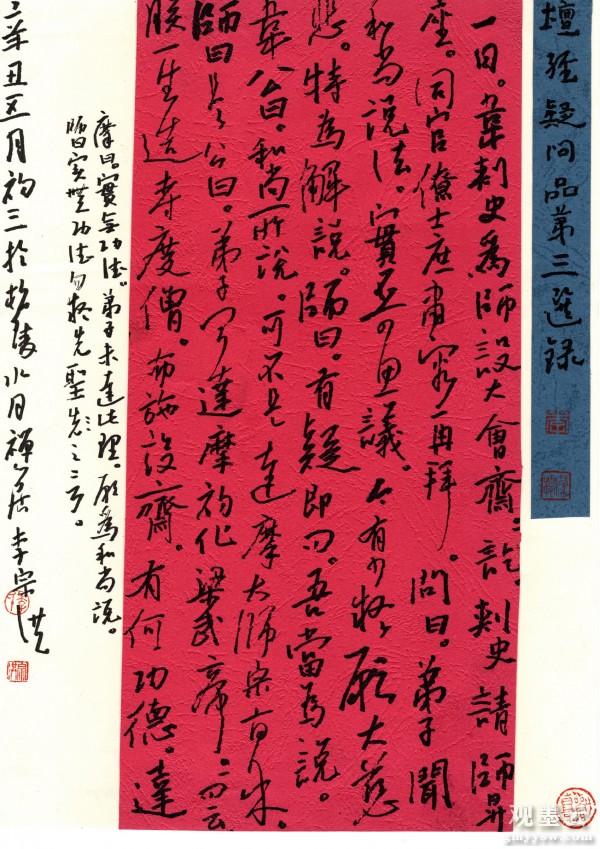 壇經疑問品第三選錄
一日。韋刺史為師設大會齋。訖。刺史請師昇
座。同官僚士庶肅容再拜。問曰。弟子聞
和尚說法。實不可思議。今有少疑。願大慈
悲。特為解說。師曰。有疑即問。吾當為說。
韋公曰。和尚所說。可不是達摩大師宗旨乎。
師曰是。公曰。弟子聞達摩初化梁武帝。云
朕一生造寺度僧。布施設齋。有何功德。達
摩曰實無功德。弟子未達此理。願為和尚說。
師曰實無功德勿疑先聖之言。
辛丑五月初三於陵水月禪居李宗
观墨